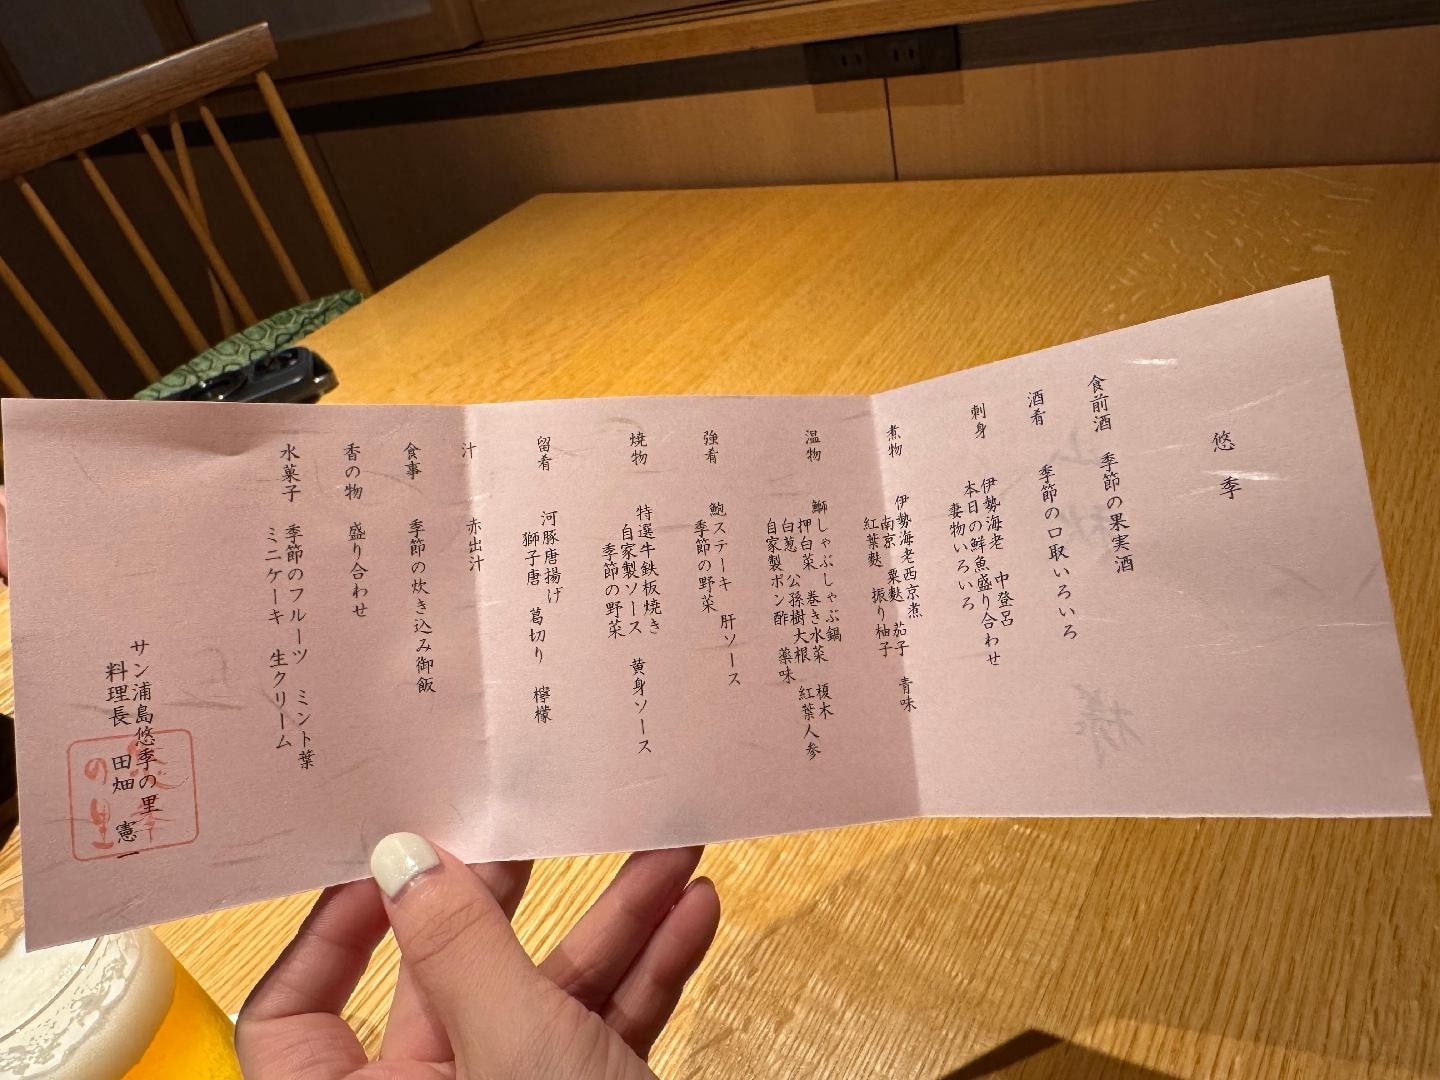 悠季
食前酒 季節の果実酒
酒肴 季節の口取いろいろ
刺身 伊勢海老 中登呂
本日の鮮魚盛り合わせ
妻物いろいろ
煮物 伊勢海老西京煮 青味
南京 粟麩 茄子
紅葉麩 振り柚子
温物 鰤しゃぶしゃぶ鍋
押白菜 巻き水菜 榎木
白葱 公孫樹大根 紅葉人参
自家製ポン酢 薬味
強肴 鮑ステーキ 肝ソース
季節の野菜
焼物 特選牛鉄板焼き
自家製ソース 黄身ソース
季節の野菜
留肴 河豚唐揚げ
獅子唐 葛切り 檸檬
汁 赤出汁
食事 季節の炊き込み御飯
香の物 盛り合わせ
水菓子 季節のフルーツ ミント葉
ミニケーキ 生クリーム
サン浦島悠季の里
料理長 田畑 憲一
悠季
の里
様